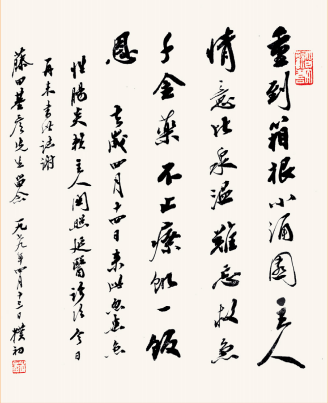 重到箱根小涌園主人
情意比泉温難忘救急
千金藥不止療飢一飯
恩 去歲四月十四日来此忽患急
性腸炎蒙主人関照延醫診治今日
再来書此誌谢
藤田基彦先生留念 一九七九年四月十三日 樸初